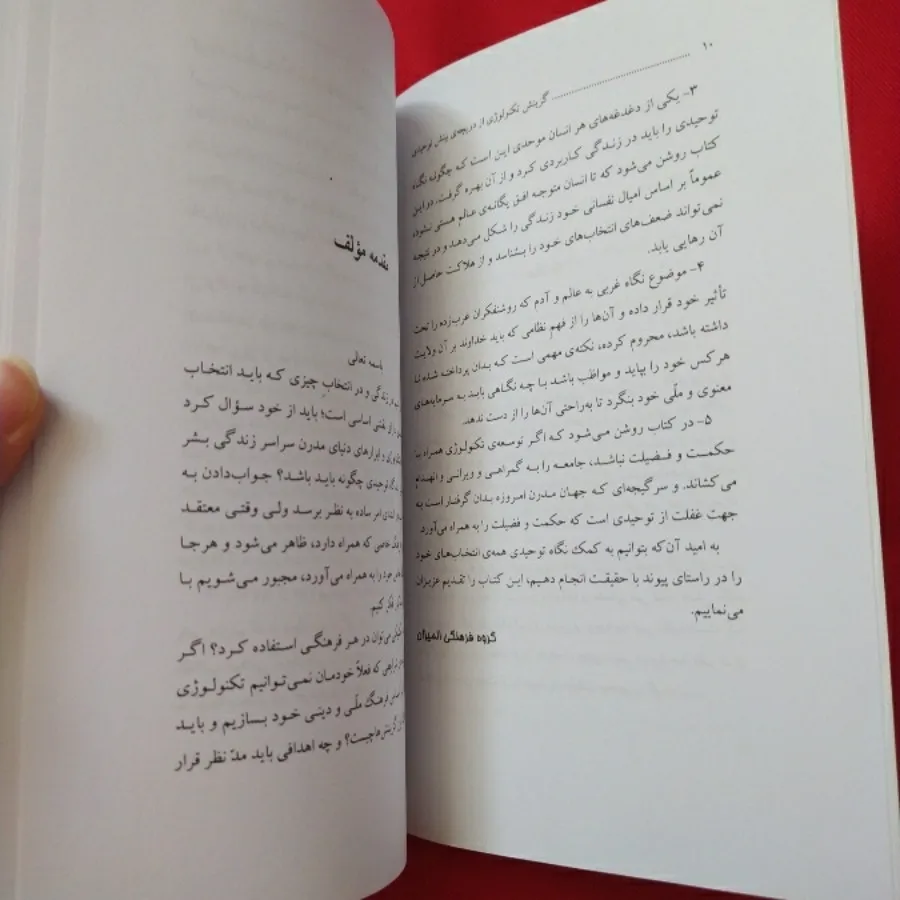 ۱۰
گزینش تکنولوژی از دریچه‌ی بینش توحیدی
۳- یکی از دغدغه‌های هر انسان موحدی این است که چگونه نگاه
توحیدی را باید در زندگی کاربردی کرد و از آن بهره گرفت. در این
کتاب روشن می‌شود که تا انسان متوجه افق یگانه‌ی عالم هستی نشود،
عموماً بر اساس امیال نفسانی خود زندگی را شکل می‌دهد و در نتیجه
نمی‌تواند ضعف‌های انتخاب‌های خود را بشناسد و از هلاکت حاصل از
آن رهایی یابد.
۴- موضوع نگاه غربی به عالم و آدم که روشنفکران غرب‌زده را تحت
تأثیر خود قرار داده و آن‌ها را از فهم نظامی که باید خداوند بر آن ولایت
داشته باشد، محروم کرده، نکته‌ی مهمی است که بدان پرداخته شده تا
هرکس خود را بپاید و مواظب باشد با چه نگاهی باید به سرمایه‌های
معنوی و ملّی خود بنگرد تا به‌راحتی آن‌ها را از دست ندهد.
۵- در کتاب روشن می‌شود که اگر توسعه‌ی تکنولوژی همراه با
حکمت و فضیلت نباشد، جامعه را به گمراهی و ویرانی و انهدام
می‌کشاند. و سرگیجه‌ای که جهان مدرن امروزه بدان گرفتار است به
جهت غفلت از توحیدی است که حکمت و فضیلت را به همراه می‌آورد.
به امید آن‌که بتوانیم به کمک نگاه توحیدی همه‌ی انتخاب‌های خود
را در راستای پیوند با حقیقت انجام دهیم، این کتاب را تقدیم عزیزان
می‌نماییم.
گروه فرهنگی المیزان
مقدمه مؤلف
باسمه تعالی
زندگی و در انتخابِ چیزی که باید انتخاب
نقشی اساسی است؛ باید از خود سؤال کرد
و ابزارهای دنیای مدرن سراسر زندگی بشر
توحیدی چگونه باید باشد؟ جواب‌دادن به
امر ساده به نظر برسد ولی وقتی معتقد
خاصی که همراه دارد، ظاهر می‌شود و هرجا
خود را به همراه می‌آورد، مجبور می‌شویم با
فکر کنیم.
می‌توان در هر فرهنگی استفاده کرد؟ اگر
که فعلاً خودمان نمی‌توانیم تکنولوژی
فرهنگ ملّی و دینی خود بسازیم و باید
چیست؟ و چه اهدافی باید مدّ نظر قرار